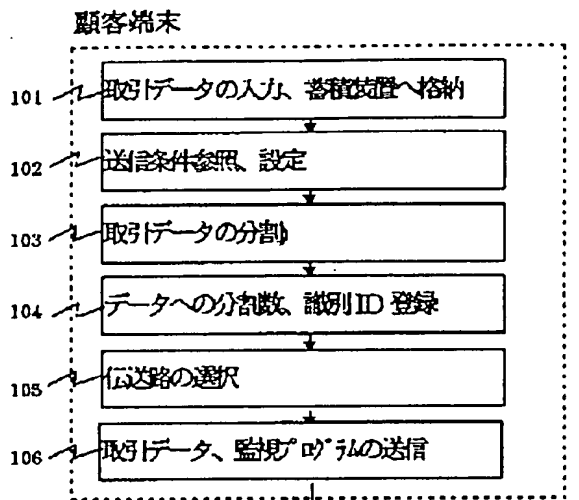 顧客端末
101 取引データの入力、蓄積装置へ格納
102 送信条件参照、設定
103 取引データの分割
104 データへの分割数、識別ID 登録
105 伝送路の選択
106 取引データ、監視プログラムの送信